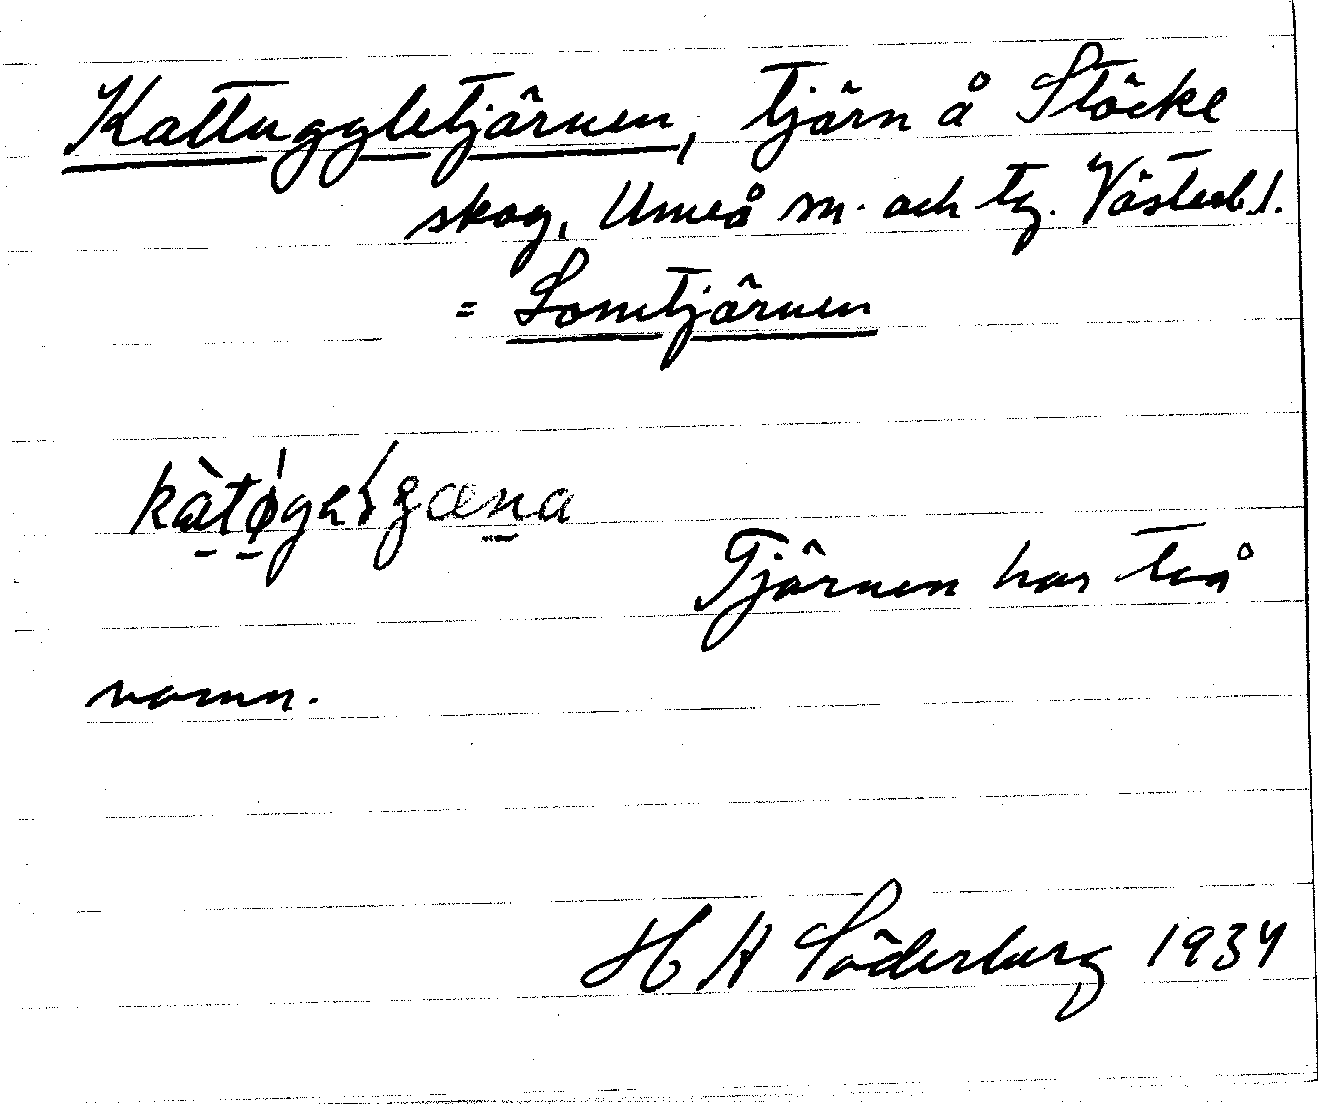 Kattuggletjärnen, tjärn å Stöcke
skog, Umeå sn. och tg. Västerb. l.
= Lomtjärnen
Tjärnen har två
namn.
H A Söderberg 1934